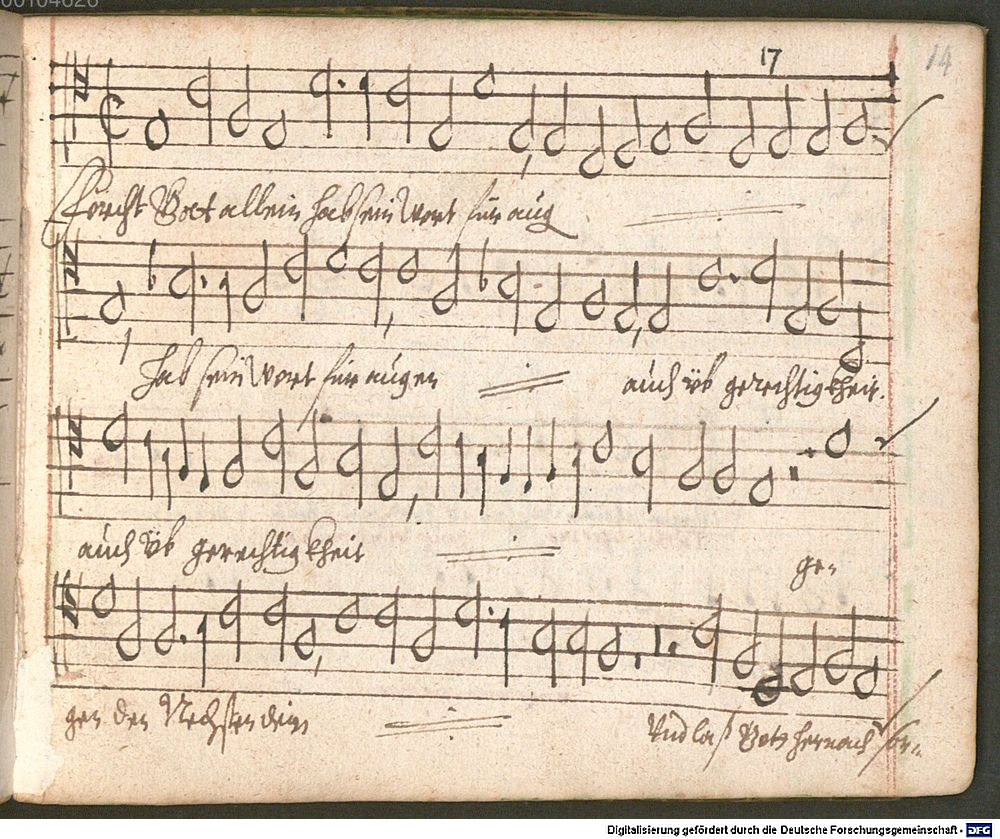 00104626
17
14
Förcht Gott allein hab sein Wort für aug
hab sein Wort für augen auch üb gerechtigkheit.
auch üb gerechtigkheit ge-
gen den Nechsten dein Und laß Gott hernach sor-
Digitalisierung gefördert durch die Deutsche Forschungsgemeinschaft - DFG